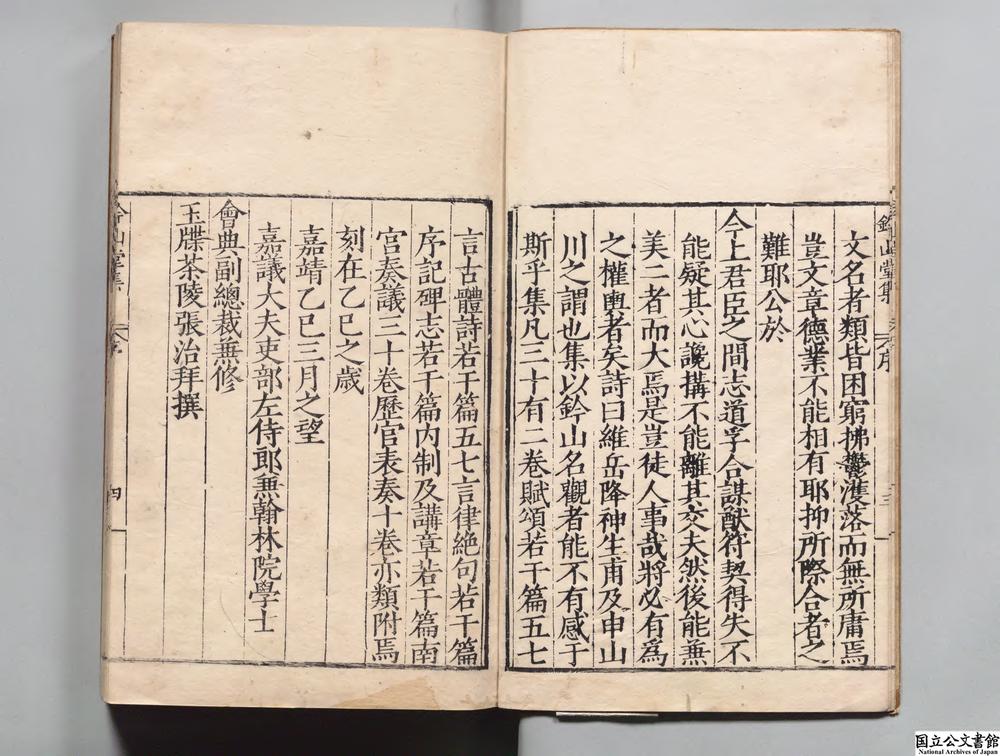 文名者類皆困窮拂鬱濩落而無所庸焉
豈文章德業不能相有耶抑所際合者之
難耶公於
今上君臣之間志道孚合謀猷符契得失不
能疑其心讒搆不能離其交夫然後能兼
美二者而大焉是豈徒人事哉將必有為
之權輿者矣詩曰維岳降神生甫及申山
川之謂也集以鈐山名觀者能不有感于
斯乎集凡三十有二卷賦頌若干篇五七
言古體詩若干篇五七言律絶句若干篇
序記碑志若干篇内制及講章若干篇南
宫奏議三十卷歷官表奏十卷亦類附焉
刻在乙巳之歳
嘉靖乙巳三月之望
嘉議大夫吏部左侍郎兼翰林院學士
會典副總裁兼修
玉牒茶陵張治拜撰
鈐山堂集
序
三
鈐山堂集
序
四
国立公文書館
National Archives of Japan